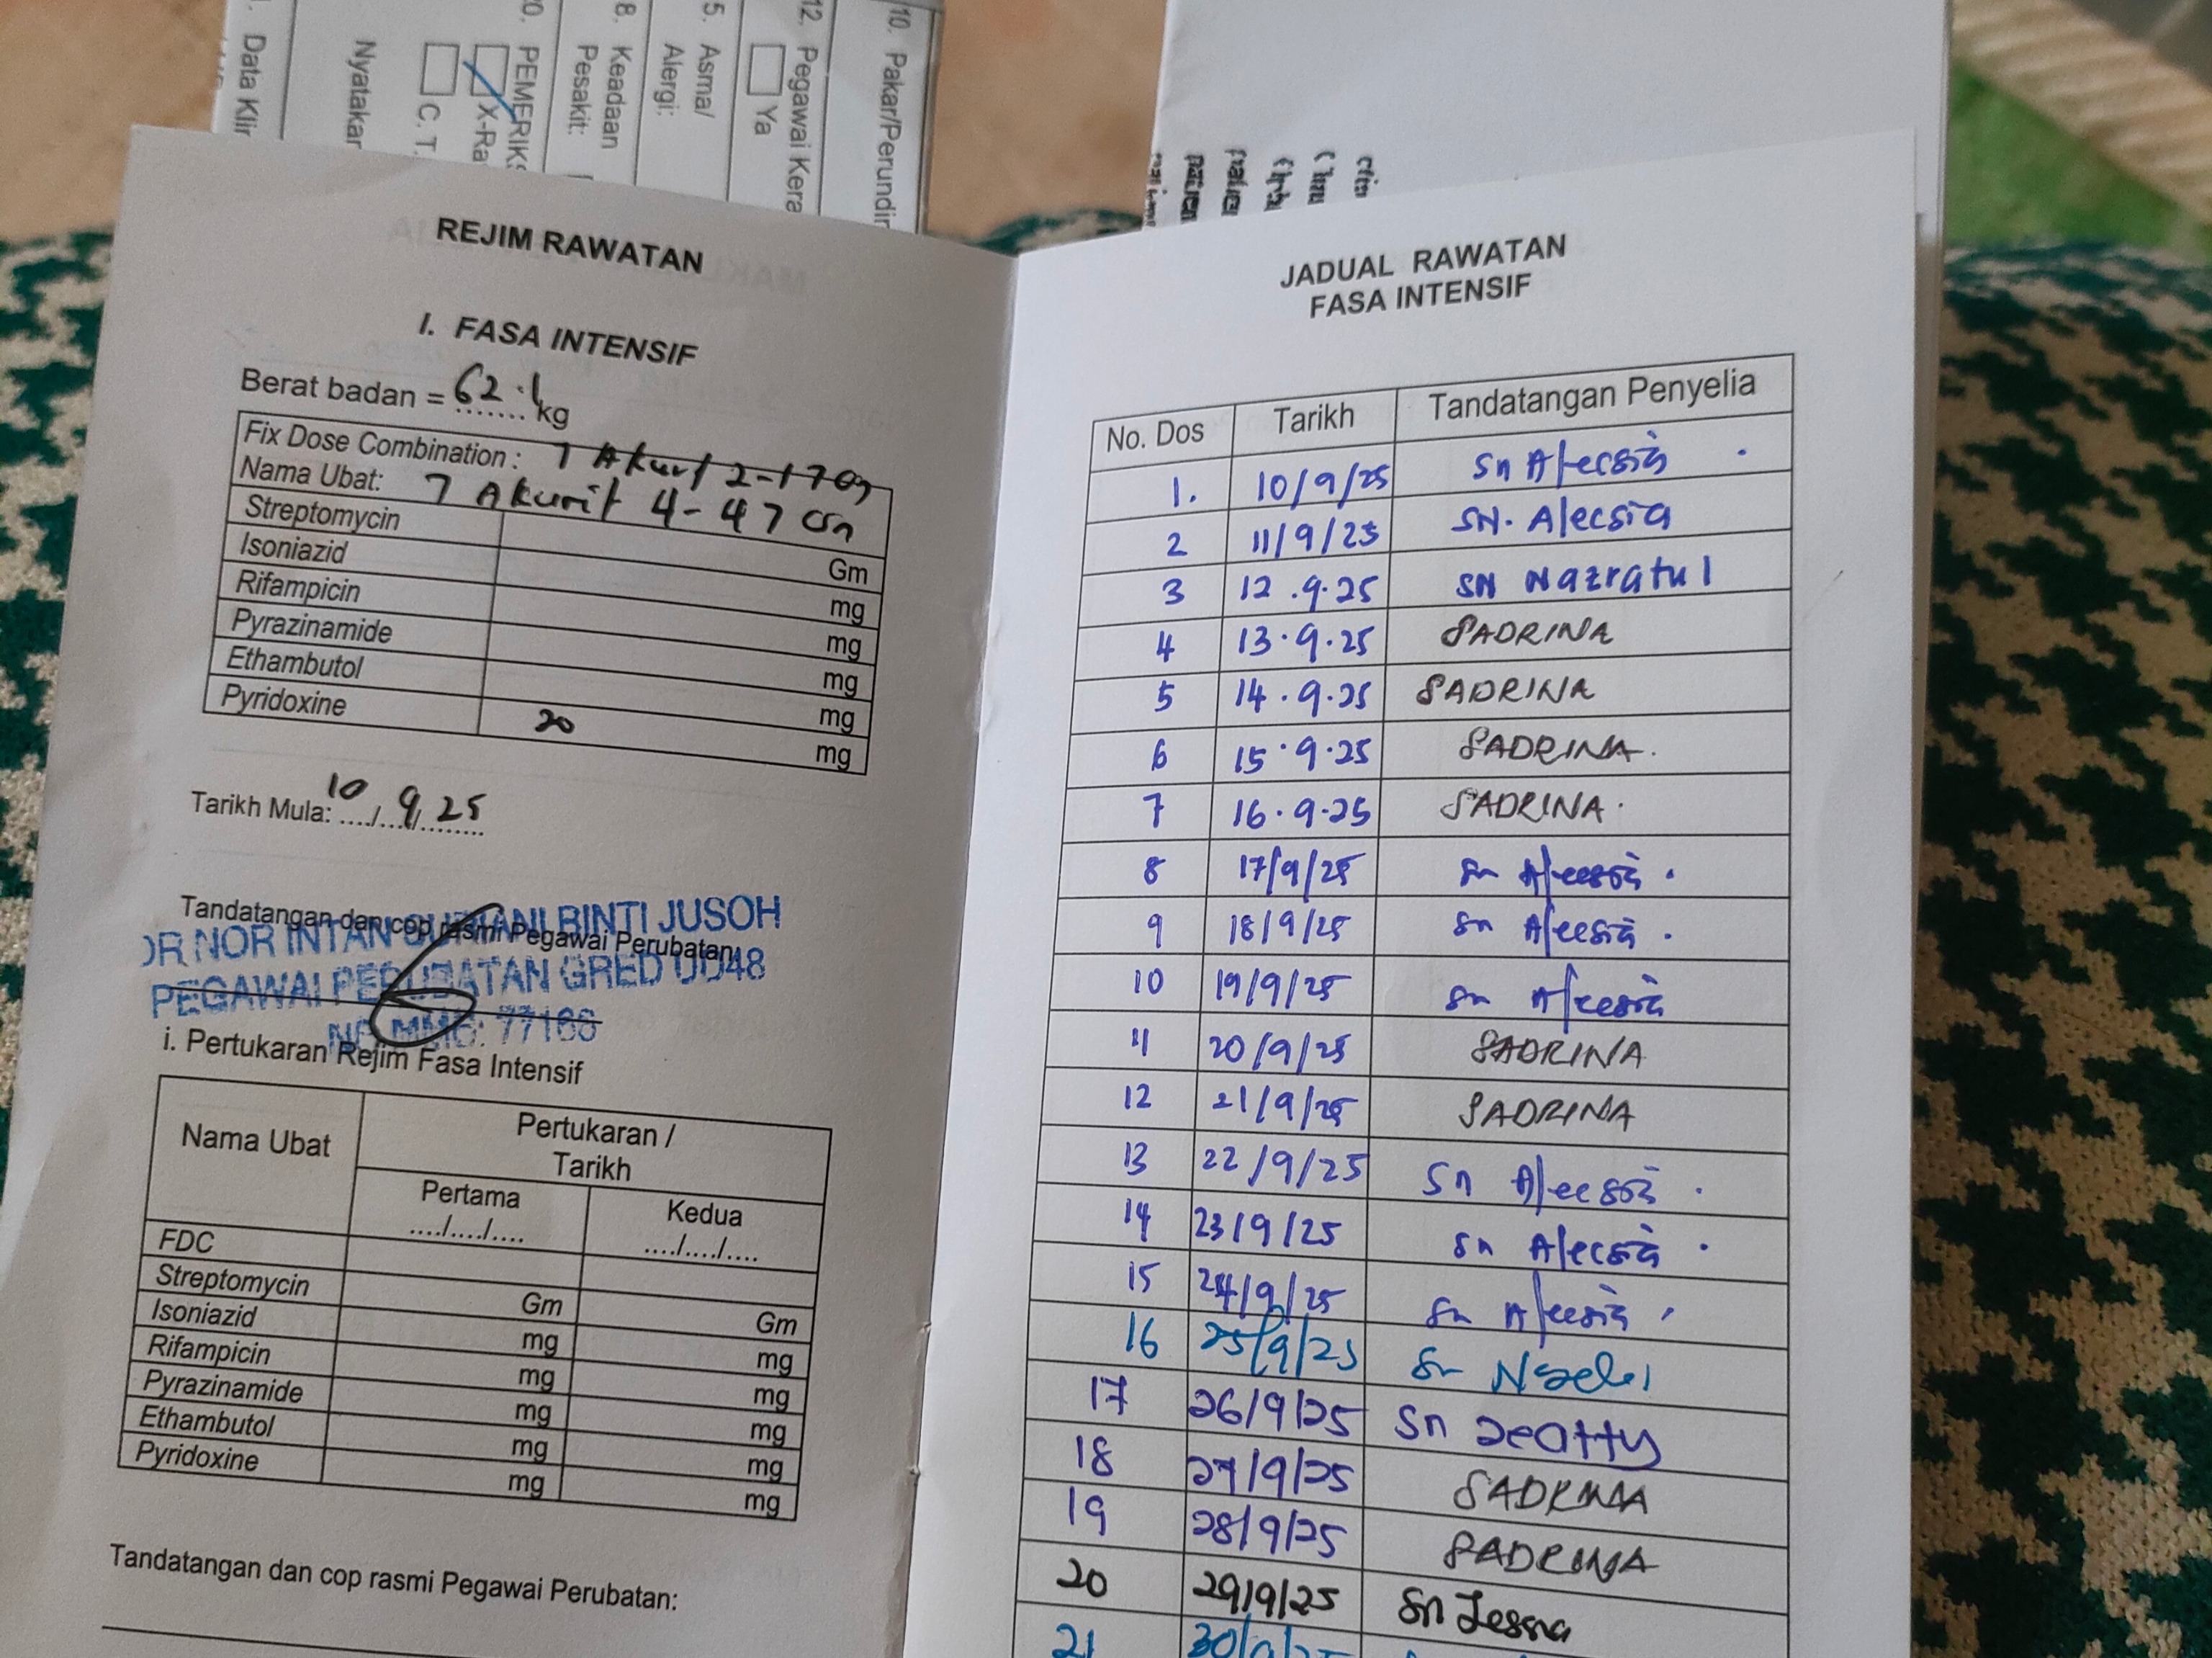 10. Pakar/Perundin
12. Pegawai Kera
Ya
5. Asma/
Alergi:
8. Keadaan
Pesakit:
PEMERIKS
X-Ra
C. T.
Nyatakan
Data Klin
REJIM RAWATAN
I. FASA INTENSIF
Berat badan = 62.1 kg
Fix Dose Combination: 7 Akurit 2-17
Nama Ubat: 7 Akurit 4-47
Streptomycin Gm
Isoniazid mg
Rifampicin mg
Pyrazinamide mg
Ethambutol mg
Pyridoxine 20 mg
Tarikh Mula: 10/9/25
Tandatangan dan cop rasmi Pegawai Perubatan:
DR NOR INTAN BINTI JUSOH
PEGAWAI PERUBATAN GRED UD48
i. Pertukaran Rejim Fasa Intensif
Nama Ubat
Pertukaran /
Tarikh
Pertama
..../..../....
Kedua
..../..../....
FDC
Streptomycin Gm Gm
Isoniazid mg mg
Rifampicin mg mg
Pyrazinamide mg mg
Ethambutol mg mg
Pyridoxine mg mg
Tandatangan dan cop rasmi Pegawai Perubatan:
JADUAL RAWATAN
FASA INTENSIF
No. Dos Tarikh Tandatangan Penyelia
1. 10/9/25 Sn Alecsia
2 11/9/25 SN. Alecsia
3 12.9.25 SN Nazratul
4 13.9.25 SADRINA
5 14.9.25 SADRINA
6 15.9.25 SADRINA.
7 16.9.25 SADRINA.
8 17/9/25 Sn Alecsia.
9 18/9/25 Sn Alecsia.
10 19/9/25 Sn Alecsia
11 20/9/25 SADRINA
12 21/9/25 SADRINA
13 22/9/25 Sn Alecsia.
14 23/9/25 Sn Alecsia.
15 24/9/25 Sn Alecsia
16 25/9/25 Sn
17 26/9/25 Sn
18 27/9/25 SADRINA
19 28/9/25 SADRINA
20 29/9/25 Sn
21